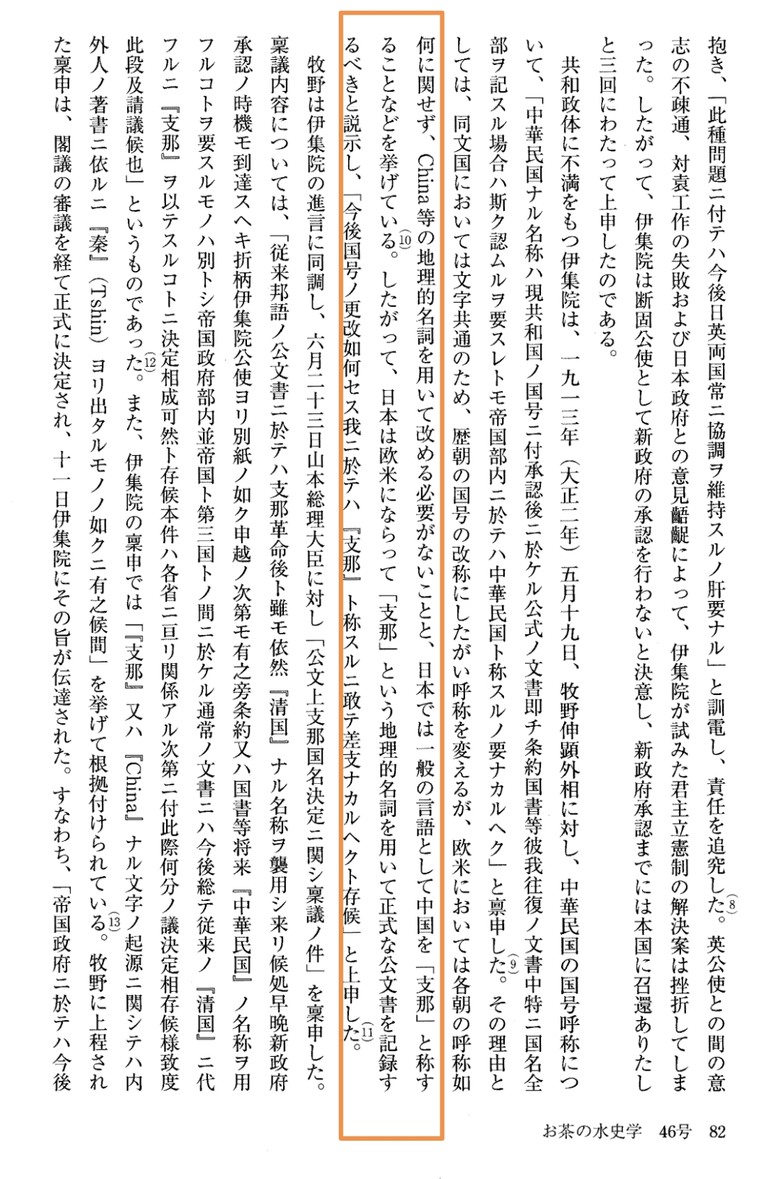 抱き、「此種問題ニ付テハ今後日英両国常ニ協調ヲ維持スルノ肝要ナル」と訓電し、責任を追究した(8)。英公使との間の意
志の不疎通、対袁工作の失敗および日本政府との意見齟齬によって、伊集院が試みた君主立憲制の解決案は挫折してしま
った。したがって、伊集院は断固公使として新政府の承認を行わないと決意し、新政府承認までには本国に召還ありたし
と三回にわたって上申したのである。
共和政体に不満をもつ伊集院は、一九一三年（大正二年）五月十九日、牧野伸顕外相に対し、中華民国の国号呼称につ
いて、「中華民国ナル名称ハ現共和国ノ国号ニ付承認後ニ於ケル公式ノ文書即チ条約国書等彼我往復ノ文書中特ニ国名全
部ヲ記スル場合ハ斯ク認ムルヲ要スレトモ帝国部内ニ於テハ中華民国ト称スルノ要ナカルヘク」と禀申した(9)。その理由と
しては、同文国においては文字共通のため、歴朝の国号の改称にしたがい呼称を変えるが、欧米においては各朝の呼称如
何に関せず、China等の地理的名詞を用いて改める必要がないことと、日本では一般の言語として中国を「支那」と称す
ることなどを挙げている(10)。したがって、日本は欧米にならって「支那」という地理的名詞を用いて正式な公文書を記録す
るべきと説示し、「今後国号ノ更改如何セス我ニ於テハ『支那』ト称スルニ敢テ差支ナカルヘクト存候」と上申した(11)。
牧野は伊集院の進言に同調し、六月二十三日山本総理大臣に対し「公文上支那国名決定ニ関シ稟議ノ件」を稟申した。
稟議内容については、「従来邦語ノ公文書ニ於テハ支那革命後ト雖モ依然『清国』ナル名称ヲ襲用シ来リ候処早晩新政府
承認ノ時機モ到達スヘキ折柄伊集院公使ヨリ別紙ノ如ク申越ノ次第モ有之旁条約又ハ国書等将来『中華民国』ノ名称ヲ用
フルコトヲ要スルモノハ別トシ帝国政府部内並帝国ト第三国トノ間ニ於ケル通常ノ文書ニハ今後総テ従来ノ『清国』ニ代
フルニ『支那』ヲ以テスルコトニ決定相成可然ト存候本件ハ各省ニ亘リ関係アル次第ニ付此際何分ノ議決定相存候様致度
此段及請議候也」というものであった(12)。また、伊集院の稟申では「『支那』又ハ『China』ナル文字ノ起源ニ関シテハ内
外人ノ著書ニ依ルニ『秦』(Tshin)ヨリ出タルモノノ如クニ有之候間」を挙げて根拠付けられている(13)。牧野に上程され
た稟申は、閣議の審議を経て正式に決定され、十一日伊集院にその旨が伝達された。すなわち、「帝国政府ニ於テハ今後
お茶の水史学　46号　82